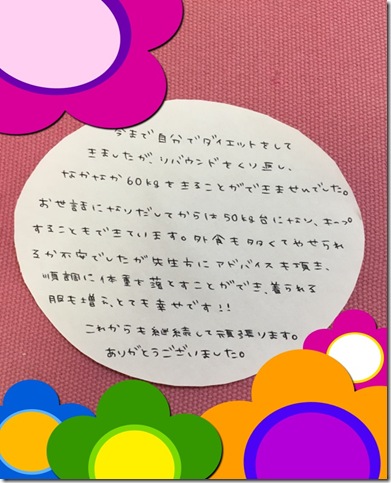 今まで自分でダイエットをして
きましたが、リバウンドをくり返し、
なかなか60kgをきることができませんでした。
お世話になりだしてからは50kg台になり、キープ
することもできています。外食も多くてやせられ
るか不安でしたが先生方にアドバイスを頂き、
順調に体重を落とすことができ、着られる
服も増え、とても幸せです!!
これからも継続して頑張ります。
ありがとうございました。